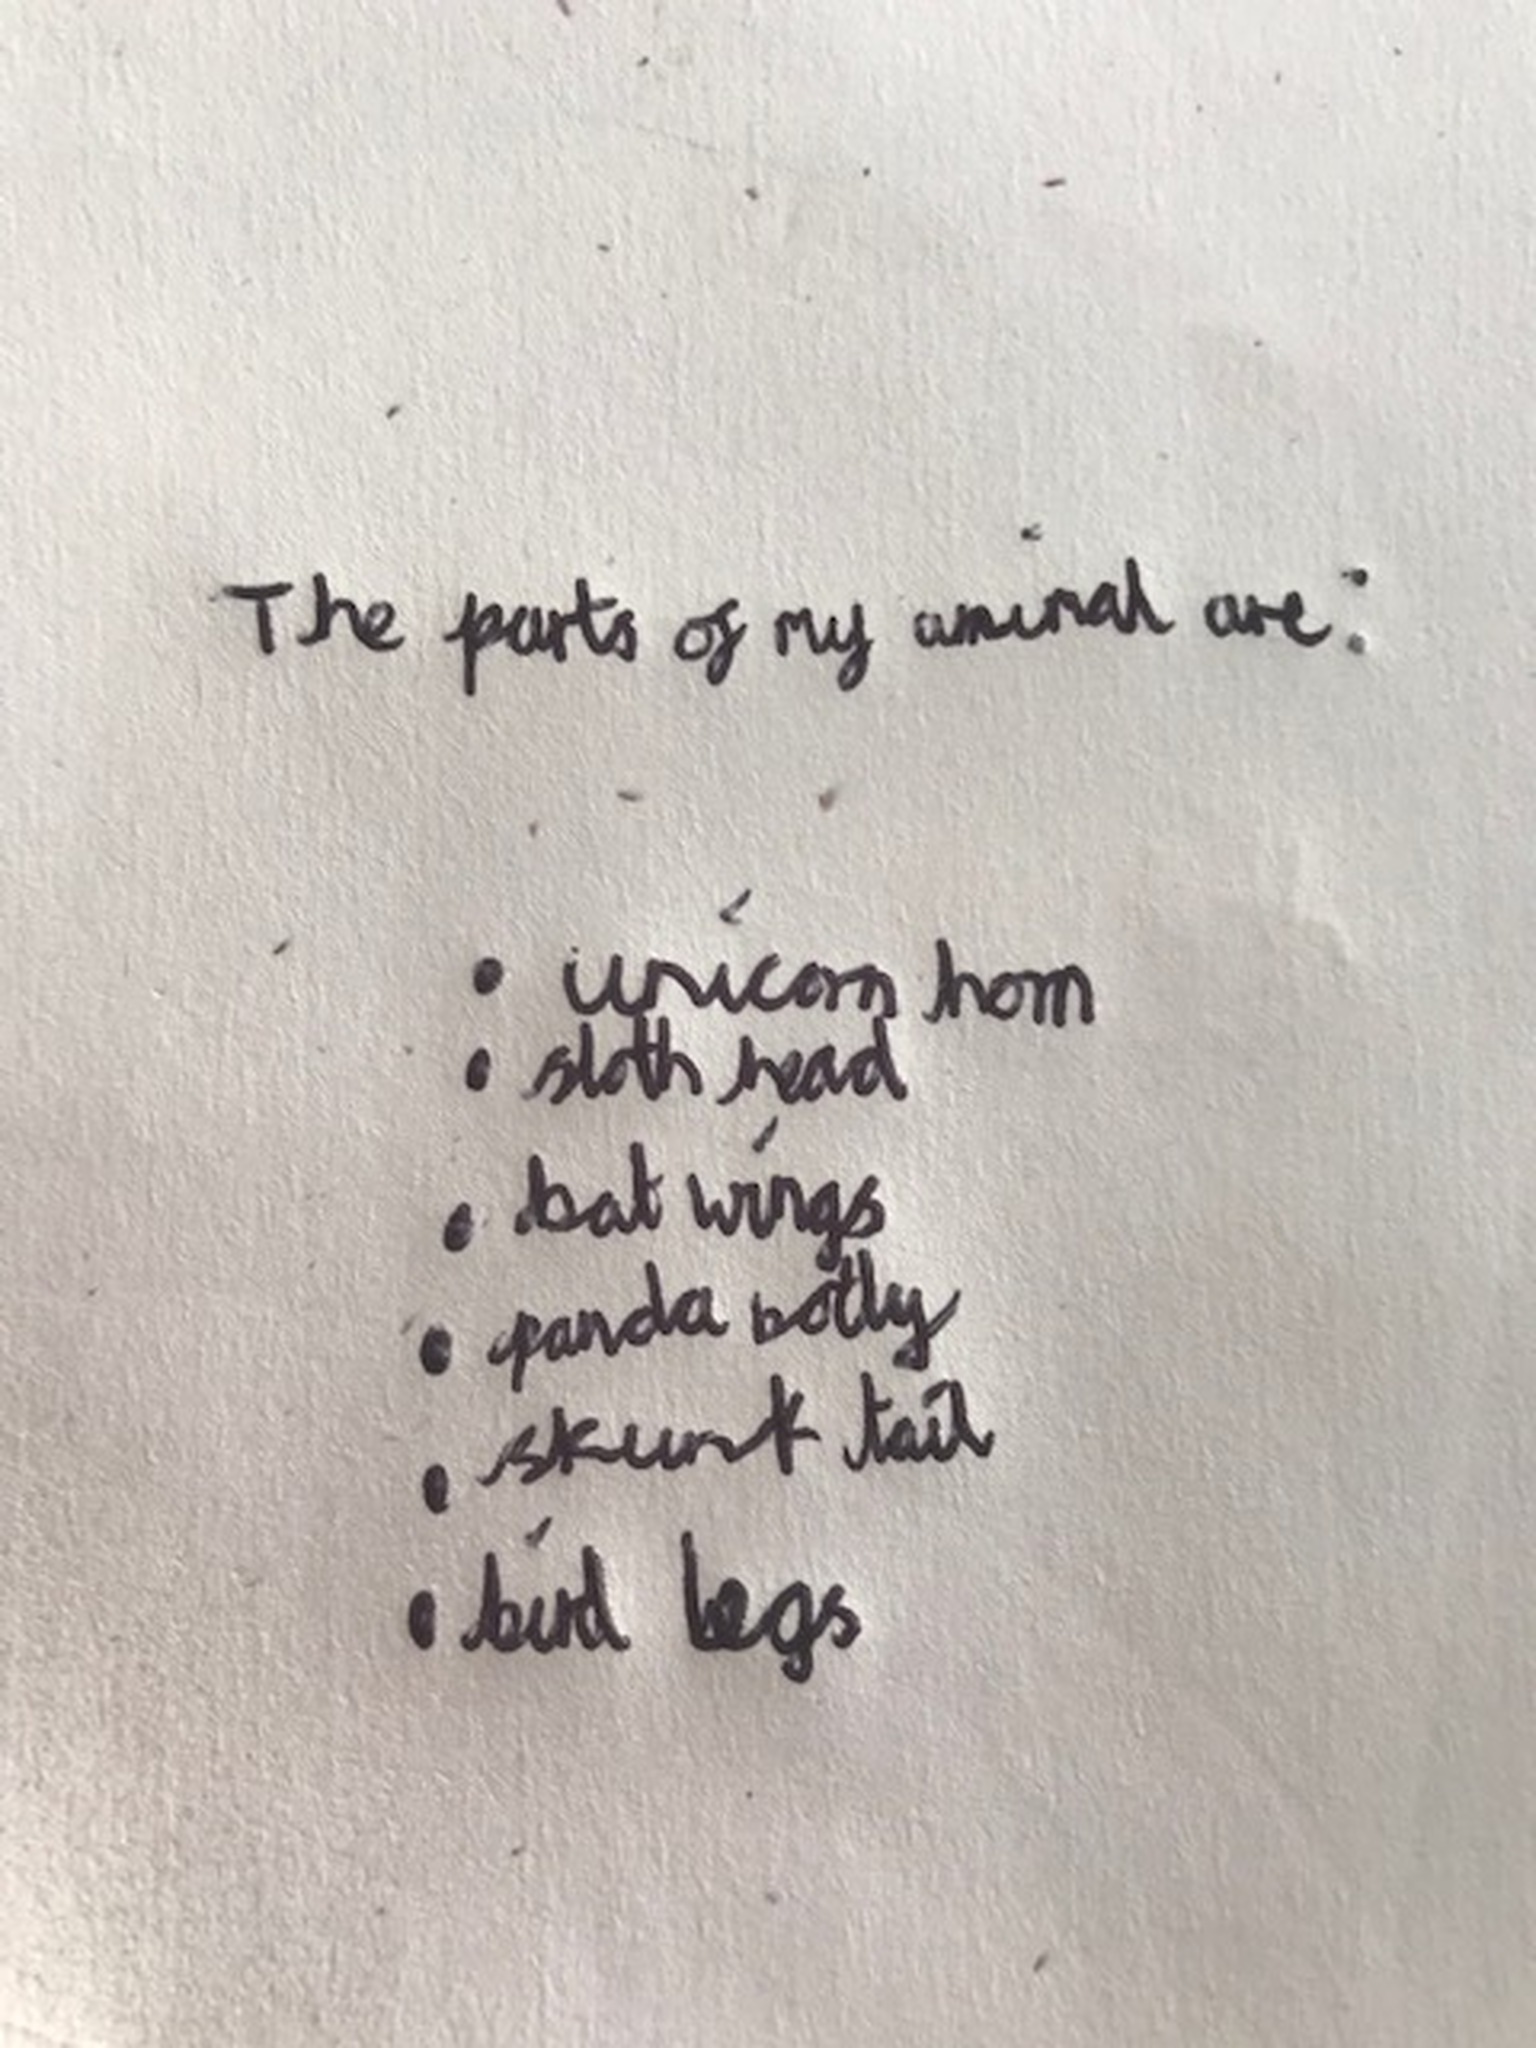 The parts of my aminal are:
• unicorn horn
• sloth head
• bat wings
• panda botly
• skunk tail
• bird legs